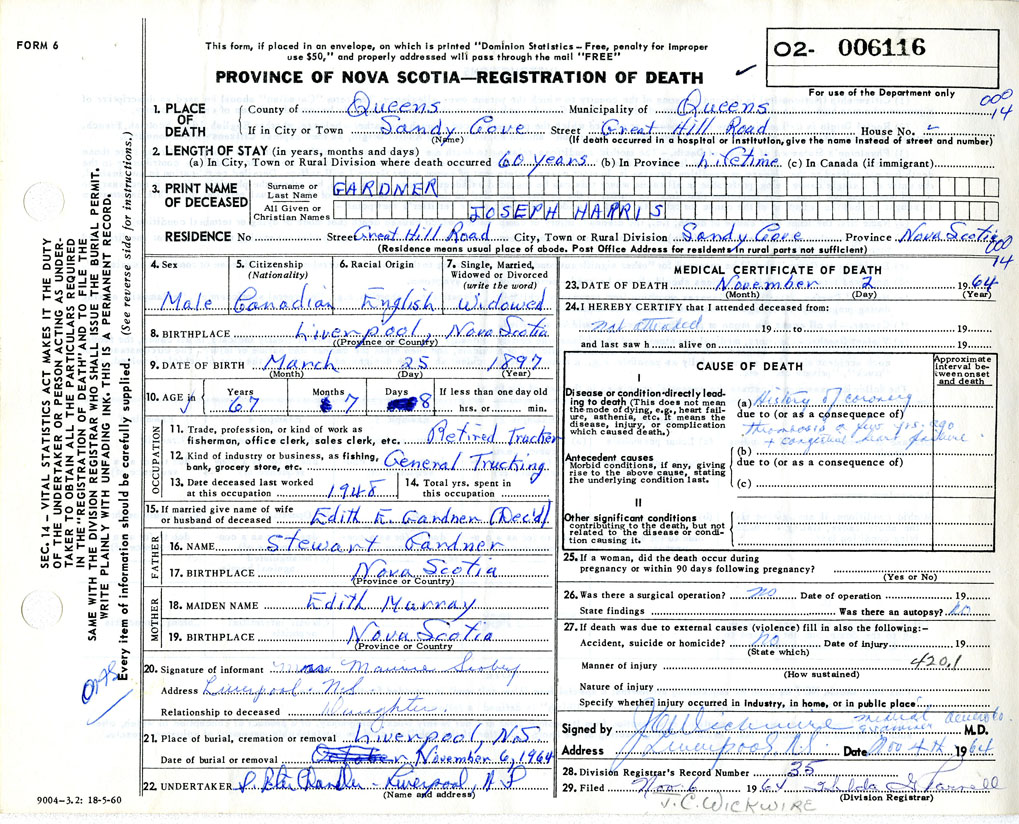 FORM 6
This form, if placed in an envelope, on which is printed "Dominion Statistics – Free, penalty for improper
use $50," and properly addressed will pass through the mail "FREE"
PROVINCE OF NOVA SCOTIA—REGISTRATION OF DEATH
02- 006116
For use of the Department only
000
14
1. PLACE OF DEATH
County of Queens Municipality of Queens
If in City or Town Sandy Cove Street Great Hill Road House No.
(Name) (If death occurred in a hospital or institution, give the name instead of street and number)
2. LENGTH OF STAY (in years, months and days)
(a) In City, Town or Rural Division where death occurred 60 years (b) In Province Lifetime (c) In Canada (if immigrant)
3. PRINT NAME OF DECEASED
Surname or Last Name GARDNER
All Given or Christian Names JOSEPH HARRIS
RESIDENCE No Street Great Hill Road City, Town or Rural Division Sandy Cove Province Nova Scotia
(Residence means usual place of abode. Post Office Address for residents in rural parts not sufficient)
000
14
4. Sex Male
5. Citizenship (Nationality) Canadian
6. Racial Origin English
7. Single, Married, Widowed or Divorced (write the word) Widowed
8. BIRTHPLACE Liverpool, Nova Scotia
(Province or Country)
9. DATE OF BIRTH March 25 1897
(Month) (Day) (Year)
10. AGE in Years 67 Months 7 Days 8 If less than one day old
hrs. or min.
OCCUPATION
11. Trade, profession, or kind of work as
fisherman, office clerk, sales clerk, etc. Retired Trucker
12. Kind of industry or business, as fishing,
bank, grocery store, etc. General Trucking
13. Date deceased last worked
at this occupation 1948
14. Total yrs. spent in
this occupation
15. If married give name of wife
or husband of deceased Edith E Gardner (Dec'd)
FATHER
16. NAME Stewart Gardner
17. BIRTHPLACE Nova Scotia
(Province or Country)
MOTHER
18. MAIDEN NAME Edith Murray
19. BIRTHPLACE Nova Scotia
(Province or Country)
20. Signature of informant
Address Liverpool N.S.
Relationship to deceased Daughter
21. Place of burial, cremation or removal Liverpool, N.S
Date of burial or removal November 6, 1964
22. UNDERTAKER Chandler Liverpool, N S
(Name and address)
MEDICAL CERTIFICATE OF DEATH
23. DATE OF DEATH November 2 1964
(Month) (Day) (Year)
24. I HEREBY CERTIFY that I attended deceased from:
not attended 19 to 19
and last saw h alive on 19
CAUSE OF DEATH
Approximate interval between onset and death
I
Disease or condition directly leading to death (This does not mean the mode of dying, e.g., heart failure, asthenia, etc. It means the disease, injury, or complication which caused death.)
(a) History of coronary
due to (or as a consequence of)
thrombosis 2 yrs ago
+ congestive heart failure
Antecedent causes
Morbid conditions, if any, giving rise to the above cause, stating the underlying condition last.
(b)
due to (or as a consequence of)
(c)
II
Other significant conditions
contributing to the death, but not related to the disease or condition causing it.
25. If a woman, did the death occur during
pregnancy or within 90 days following pregnancy?
(Yes or No)
26. Was there a surgical operation? no Date of operation 19
State findings Was there an autopsy? no
27. If death was due to external causes (violence) fill in also the following:–
Accident, suicide or homicide? No Date of injury 19
(State which)
Manner of injury 420.1
(How sustained)
Nature of injury
Specify whether injury occurred in Industry, in home, or in public place
Signed by J C Wickwire medical examiner M.D.
Address Liverpool N.S. Date Nov 4th 1964
28. Division Registrar's Record Number 35
29. Filed Nov 6 1964
(Division Registrar)
J.C. WICKWIRE
SEC. 14 – VITAL STATISTICS ACT MAKES IT THE DUTY
OF THE UNDERTAKER OR PERSON ACTING AS UNDER-
TAKER TO OBTAIN ALL THE PARTICULARS REQUIRED
IN THE "REGISTRATION OF DEATH" AND TO FILE THE
SAME WITH THE DIVISION REGISTRAR WHO SHALL ISSUE THE BURIAL PERMIT.
WRITE PLAINLY WITH UNFADING INK. THIS IS A PERMANENT RECORD.
Every item of information should be carefully supplied. (See reverse side for instructions.)
9004-3.2: 18-5-60